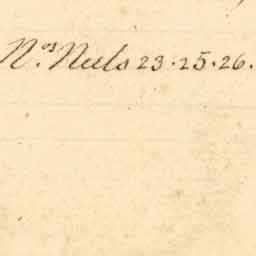 Nos. Neels 23.25.26.